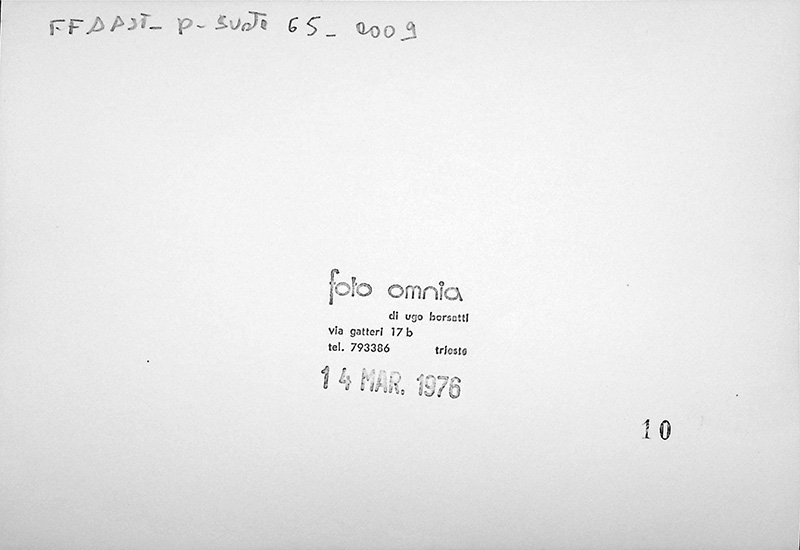 FFDAST_ P_ BUSTE 65_ 2009
foto omnia
di ugo borsatti
via gatteri 17 b
tel. 793386 trieste
14 MAR. 1976
10